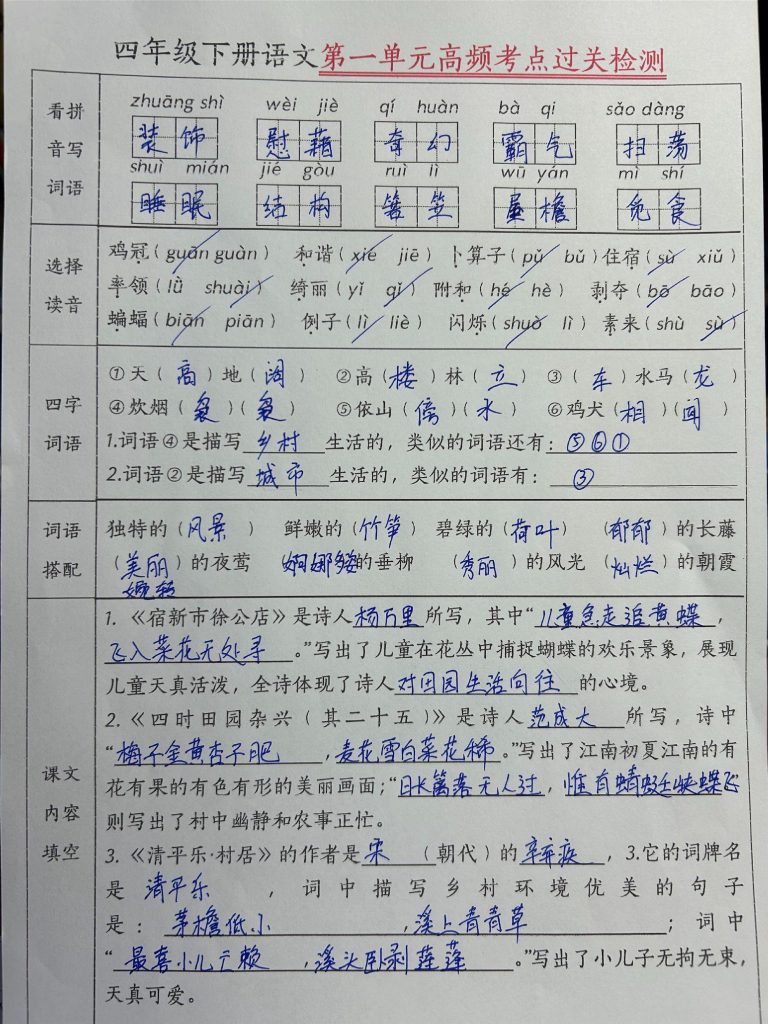 四年级下册语文第一单元高频考点过关检测
看拼音写词语
zhuāng shì wèi jiè qí huàn bà qi sǎo dàng
装饰 慰藉 奇幻 霸气 扫荡
shuì mián jié gòu ruì lì wū yán mì shí
睡眠 结构 檐 觅食
选择读音
鸡冠(guān guàn) 和谐(xié jiē) 卜算子(pǔ bǔ)住宿(sù xiǔ)
率领(lǜ shuài) 绮丽(yǐ qǐ) 附和(hé hè) 剥夺(bō bāo)
蝙蝠(biān piān) 例子(lì liè) 闪烁(shuò lì) 素来(shù sù)
四字词语
①天(高)地(阔) ②高(楼)林(立) ③(车)水马(龙)
④炊烟(袅)(袅) ⑤依山(傍)(水) ⑥鸡犬(相)(闻)
1.词语④是描写乡村生活的，类似的词语还有：⑤⑥①
2.词语②是描写城市生活的，类似的词语有：③
词语搭配
独特的(风景) 鲜嫩的(竹笋) 碧绿的(荷叶) (郁郁)的长藤
(美丽)的夜莺 婀娜多姿的垂柳 (秀丽)的风光 (灿烂)的朝霞
婉转
课文内容填空
1.《宿新市徐公店》是诗人杨万里所写，其中“儿童急走追黄蝶，
飞入菜花无处寻。”写出了儿童在花丛中捕捉蝴蝶的欢乐景象，展现
儿童天真活泼，全诗体现了诗人对田园生活向往的心境。
2.《四时田园杂兴(其二十五)》是诗人范成大所写，诗中
“梅子金黄杏子肥，麦花雪白菜花稀。”写出了江南初夏江南的有
花有果的有色有形的美丽画面；“日长篱落无人过，惟有蜻蜓蛱蝶飞
则写出了村中幽静和农事正忙。
3.《清平乐·村居》的作者是宋(朝代)的辛弃疾，3.它的词牌名
是清平乐，词中描写乡村环境优美的句子
是：茅檐低小，溪上青青草；词中
“最喜小儿亡赖，溪头卧剥莲蓬。”写出了小儿子无拘无束，
天真可爱。